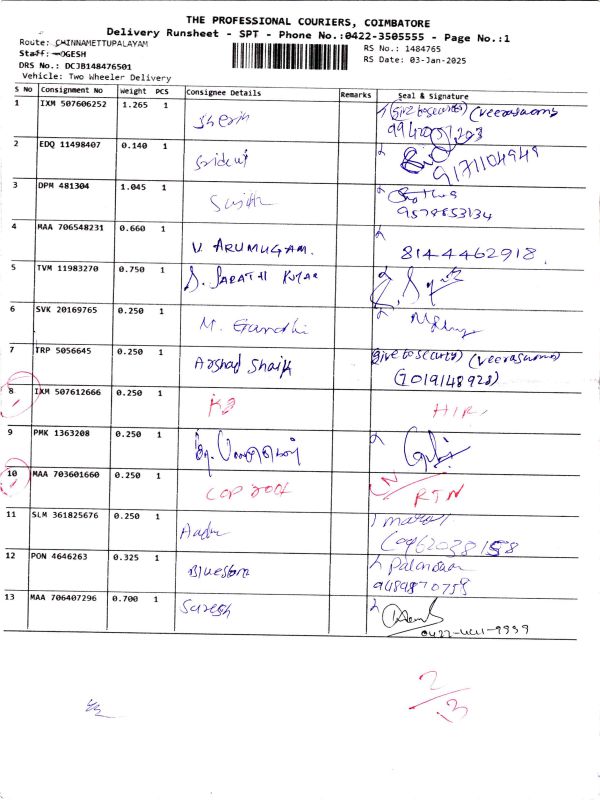 THE PROFESSIONAL COURIERS, COIMBATORE
Delivery Runsheet - SPT - Phone No.:0422-3505555 - Page No.:1
Route: CHINNAMETTUPALAYAM
RS No.: 1484765
Staff: OGESH
RS Date: 03-Jan-2025
DRS No.: DCJB148476501
Vehicle: Two Wheeler Delivery
S No Consignment No Weight PCS Consignee Details Remarks Seal & Signature
1 IXM 507606252 1.265 1 Sherin (Give to security) (Veeraswamy)
2 EDQ 11498407 0.140 1 Srident
9171104949
3 DPM 481304 1.045 1
9578853134
4 MAA 706548231 0.660 1 V. ARUMUGAM. 8144462918.
5 TVM 11983270 0.750 1 S. SARATH KUMAR
6 SVK 20169765 0.250 1 M. Gandhi
7 TRP 5056645 0.250 1 Arshad Shaik Give to security) (Veeraswamy)
(7019148928)
8 IXM 507612666 0.250 1
9 PMK 1363208 0.250 1
10 MAA 703601660 0.250 1 RTN
11 SLM 361825676 0.250 1
12 PON 4646263 0.325 1 Bluestone
9489870758
13 MAA 706407296 0.700 1 Suresh
2/13